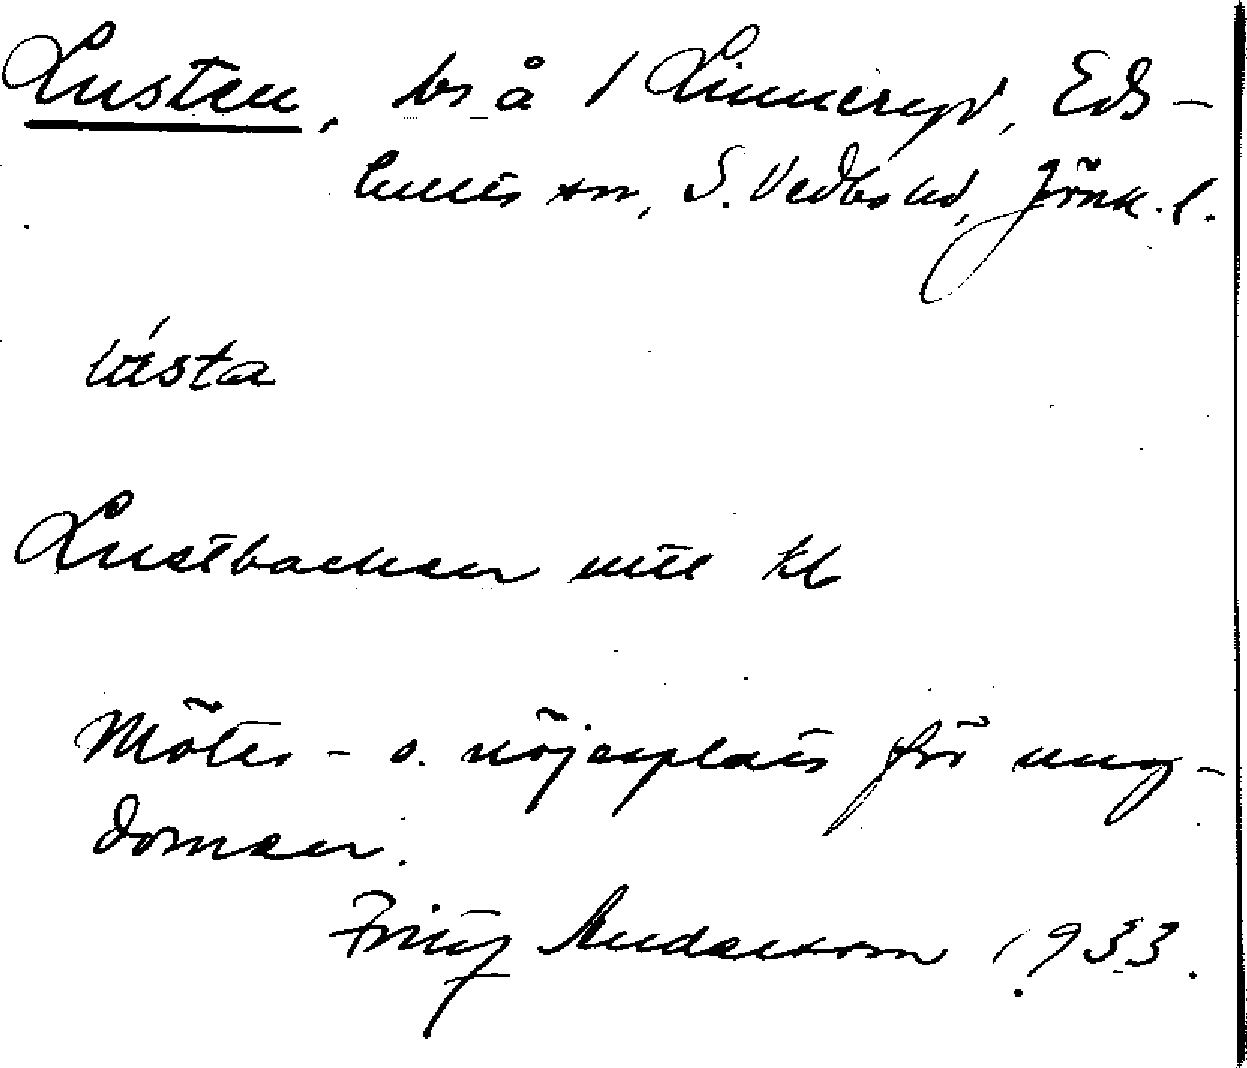 Lusten, bs å 1 Linneryd, Eds-
hults sn, S. Vedbo hd, Jönk. l.
lústa
Lustbacken uttl kb
Mötes- o. nöjesplats för ung-
domen.
Fritz Andersson 1933.